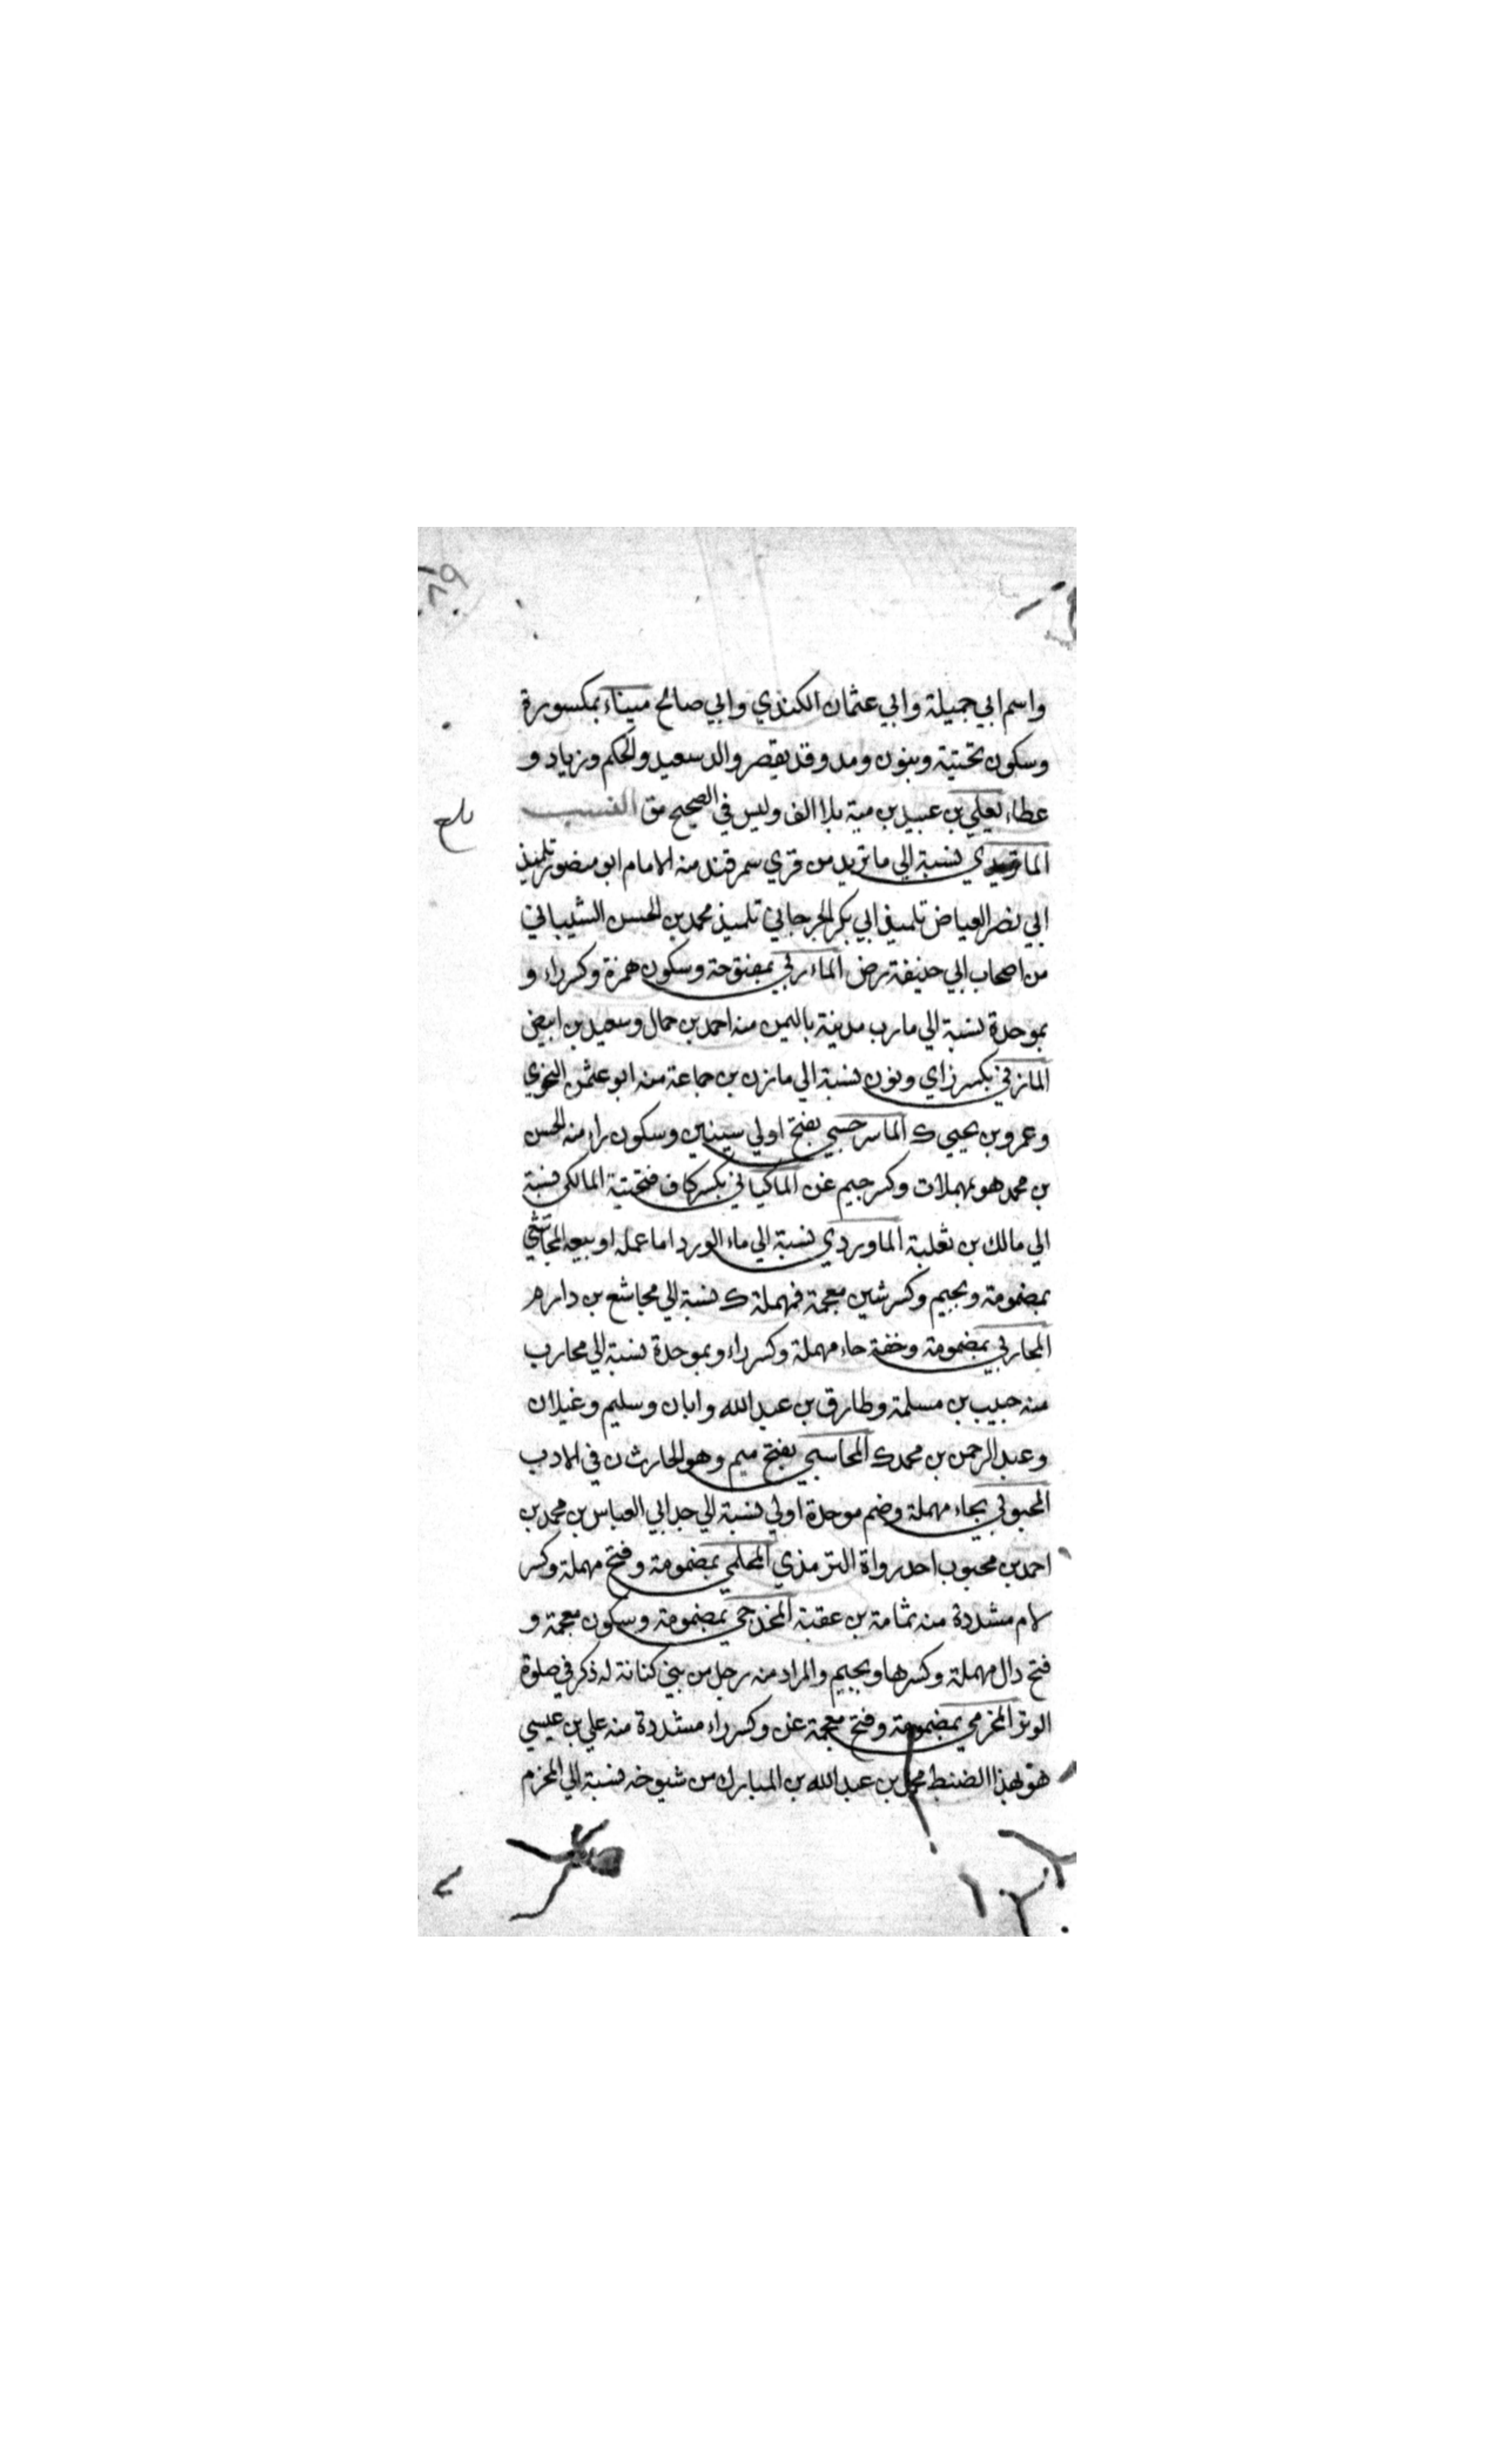 واسم ابي جميلة وابي عثمان الكندي وابي صالح ميناء بمكسورة
وسكون تحتية وبنون ومد وقد يقصر والد سعيد والحكم وزياد و
عطاء يعلي بن عبيد بن مية بلا الف وليس في الصحيح مق النسب
الماتريدي نسبة الي ماتريد من قري سمرقند منه الامام ابو منصور تلميذ
ابي نصر العياض تلميذ ابي بكر الجرجاني تلميذ محمد بن الحسن الشيباني
من اصحاب ابي حنيفة رض الماربي بمفتوحة وسكون همزة وكسر راء و
بموحدة نسبة الي مارب مدينة باليمن منه احمد بن حمال وسعيد بن ابيض
المازني بكسر زاي ونون نسبة الي مازن بن جماعة منه ابو عثمن النحوي
وعمرو بن يحيي ك الماسرجسي بفتح اولي سينين وسكون راء منه الحسن
بن محمد هو بمهملات وكسر جيم غن الماكياني بكسر كاف فتحتية المالكي نسبة
الي مالك بن ثعلبة الماوردي نسبة الي ماء الورد اما عمله او بيعه المجاشعي
بمضمومة وبجيم وكسر شين معجمة فمهملة ك نسبة الي مجاشع بن دارم
المحاربي بمضمومة وخفة حاء مهملة وكسر راء وبموحدة نسبة الي محارب
منه حبيب بن مسلمة وطارق بن عبد الله وابان وسليم وغيلان
وعبد الرحمن بن محمد ك المحاسبي بفتح ميم وهو الحارث ن في الادب
المحبوبي بحاء مهملة وضم موحدة اولي نسبة الي جد ابي العباس بن محمد بن
احمد بن محبوب احد رواة الترمذي المحلمي بمضمومة وفتح مهملة وكسر
لام مشددة منه ثمامة بن عقبة المخدجي بمضمومة وسكون معجمة و
فتح دال مهملة وكسرها وبجيم والمراد منه رجل من بني كنانة له ذكر في صلوة
الوتر المخرمي بمضمومة وفتح معجمة غن وكسر راء مشددة منه علي بن عيسي
هق بهذا الضبط محمد بن عبد الله بن المبارك من شيوخه نسبة الي المخرم